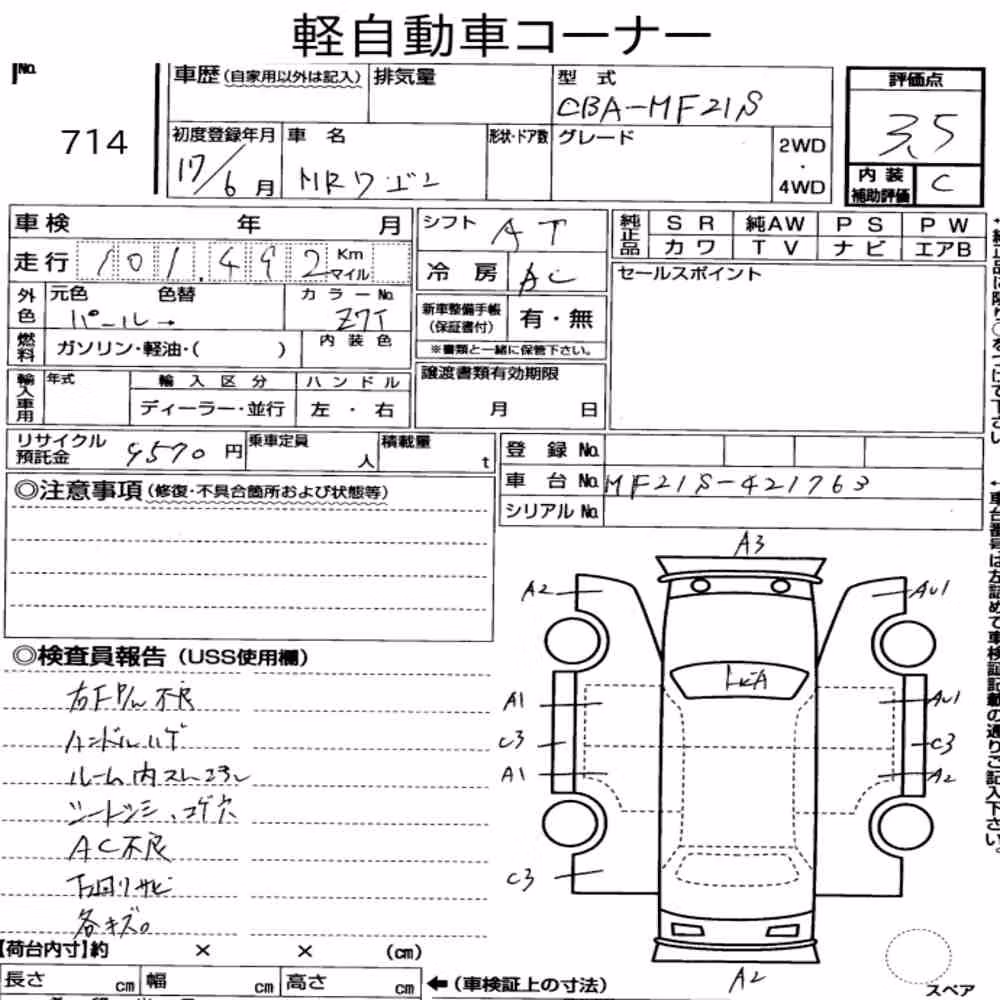 軽自動車コーナー
No.
714
車歴(自家用以外は記入)
排気量
型 式
CBA-MF21S
評価点
3.5
初度登録年月
17/6月
車 名
MRワゴン
形状・ドア数
グレード
2WD
・
4WD
内 装
補助評価
C
車 検 年 月
シフト
AT
純正品
S R
純AW
P S
P W
カ ワ
T V
ナ ビ
エアB
走 行
101.492
Km
マイル
冷 房
AC
セールスポイント
外色
元色 色替
パール→
カラーNo.
Z7T
新車整備手帳
(保証書付)
有・無
※書類と一緒に保管下さい。
燃料
ガソリン・軽油・( )
内 装 色
譲渡書類有効期限
月 日
輸入車用
年式
輸 入 区 分
ハ ン ド ル
ディーラー・並行
左 ・ 右
リサイクル
預託金
9570円
乗車定員
人
積載量
t
登 録 No.
車 台 No.
MF21S-421763
シリアル No.
◎注意事項(修復・不具合箇所および状態等)
◎検査員報告(USS使用欄)
ハンドルハゲ
シートシミ、コゲ穴
AC不良
下回りサビ
各キズ。
A3
A2
AU1
A1
AU1
C3
C3
A1
A2
C3
A2
スペア
【荷台内寸】約 × × (cm)
長さ cm
幅 cm
高さ cm
←(車検証上の寸法)
↑純正品に限り○をつけて下さい
↑車台番号は左詰めで車検証記載の通りご記入下さい。